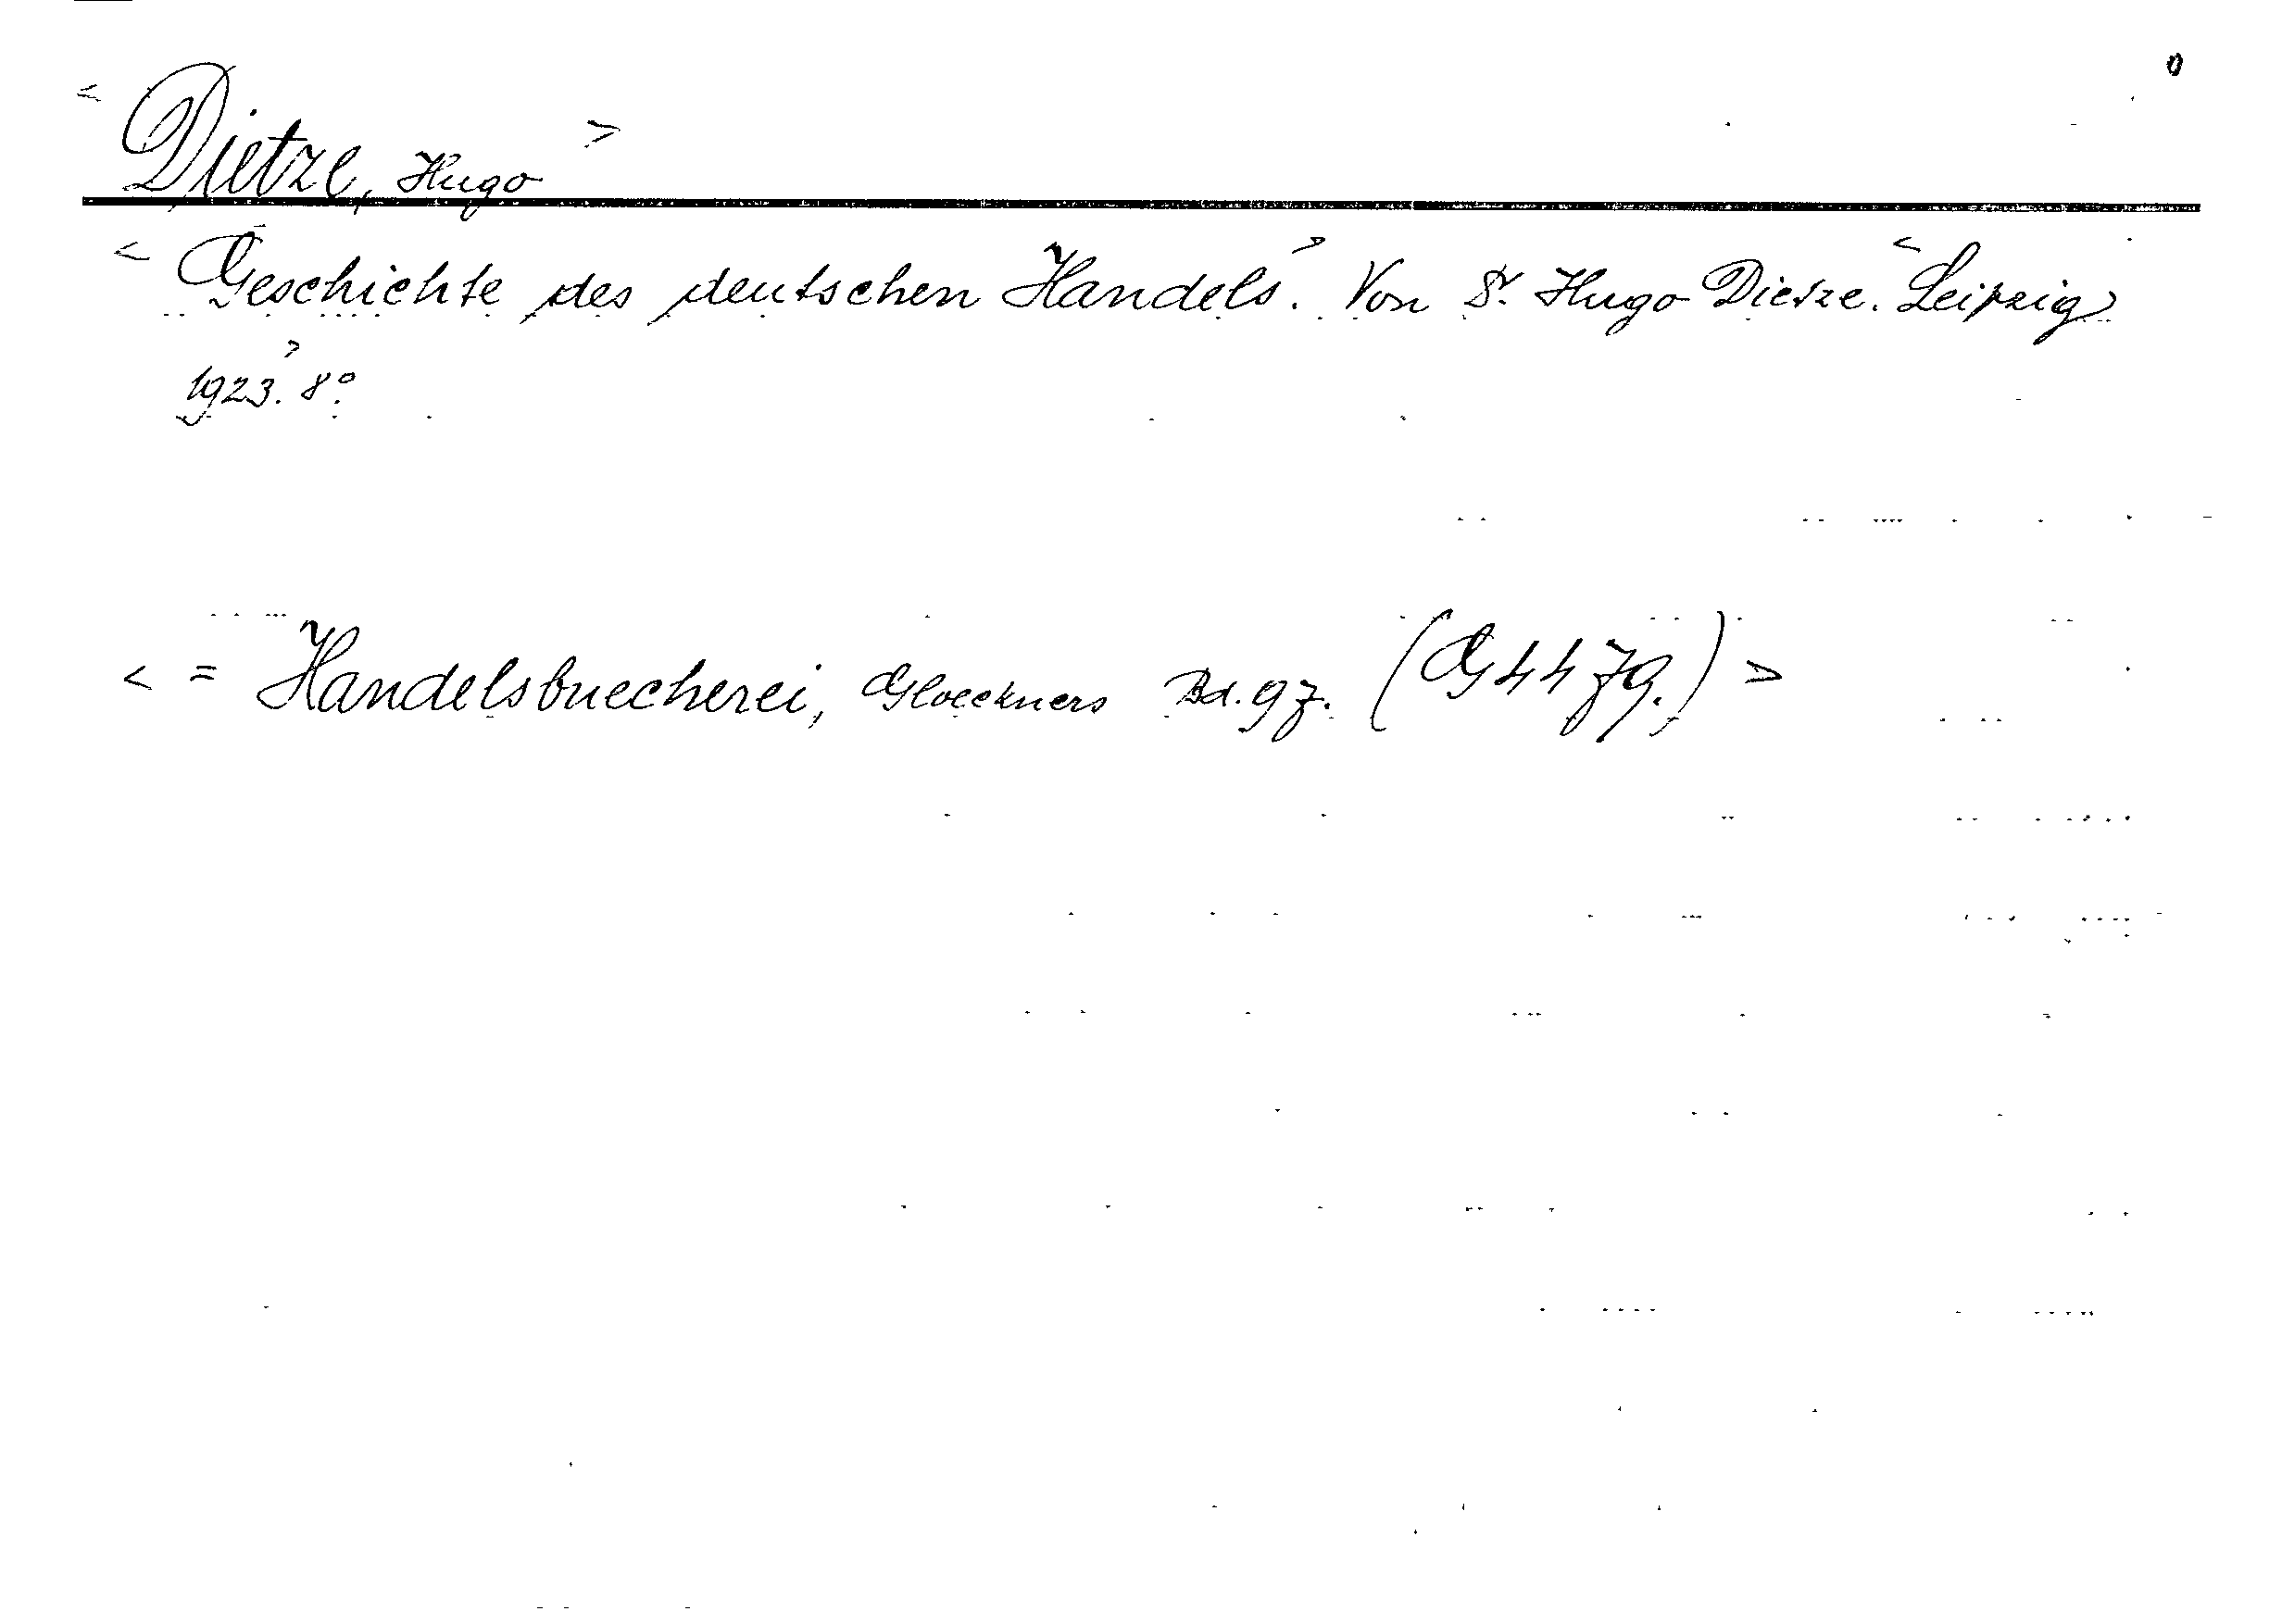 < Dietze, Hugo >
< Geschichte des deutschen Handels.> Von Dr. Hugo Dietze. < Leipzig
1923.> 8°.
< = Handelsbuecherei, Gloeckners Bd. 97. (G 4479.) >